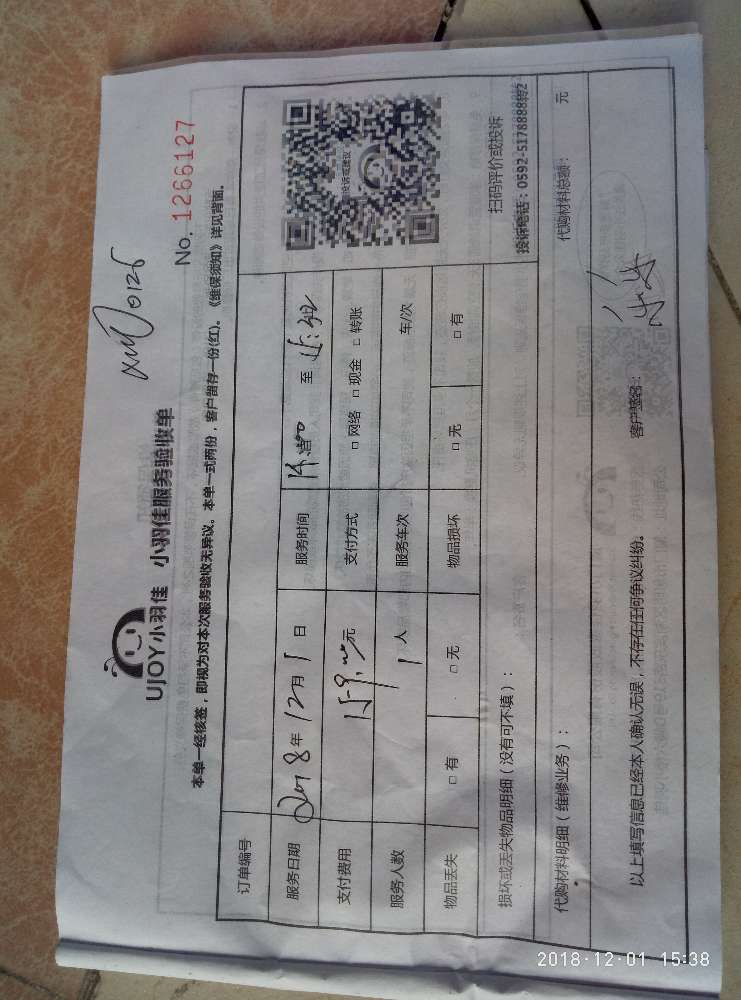 UJOY小羽佳 小羽佳服务验收单
0126
No. 1266127
本单一经核签，即视为对本次服务验收无异议。本单一式两份，客户留存一份(红)。《维保须知》详见背面。
订单编号
服务日期 2018年12月1日 服务时间 至
支付费用 元 支付方式 □网络 □现金 □转账
服务人数 1人 服务车次 车/次
物品丢失 □有 □无 物品损坏 □无 □有
投诉或建议
扫码评价或投诉
投诉电话：0592-5178888转2
损坏或丢失物品明细（没有可不填）：
代购材料明细（维修业务）： 代购材料总额： 元
以上填写信息已经本人确认无误，不存在任何争议纠纷。 客户签名：
2018-12-01 15:38